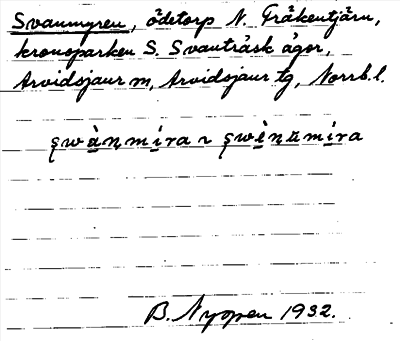 Svanmyren, ödetorp N. Gråkentjärn,
kronoparken S. Svanträsk ägor,
Arvidsjaur m, Arvidsjaur tg, Norrb. l.
B. Nyopen 1932.